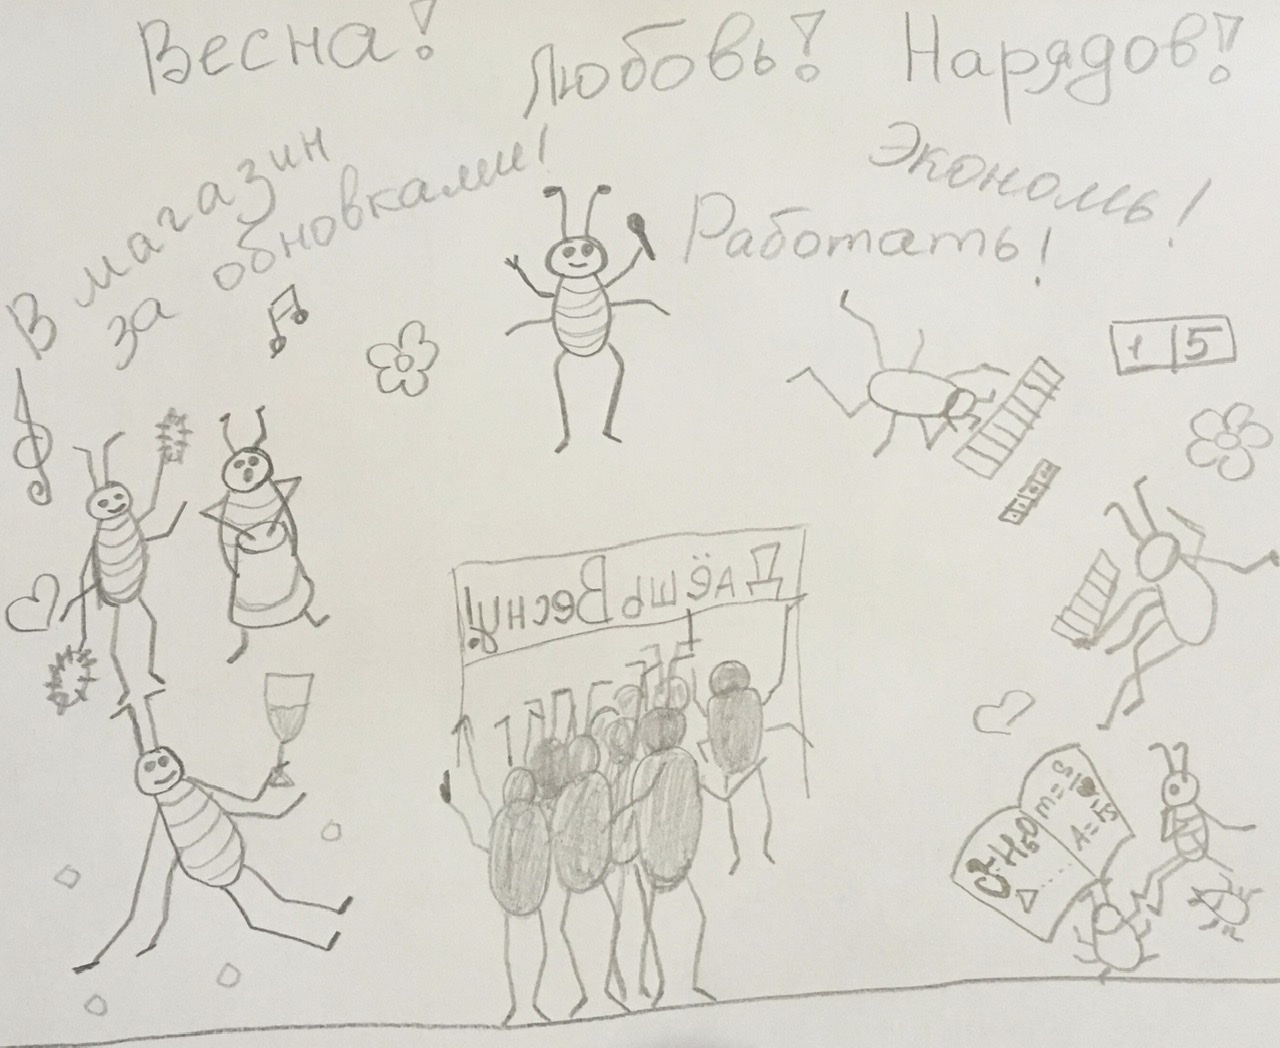 Весна! Любовь! Нарядов!
В магазин
за обновками!
Экономь!
Работать!
1 5
Даёшь Весну!